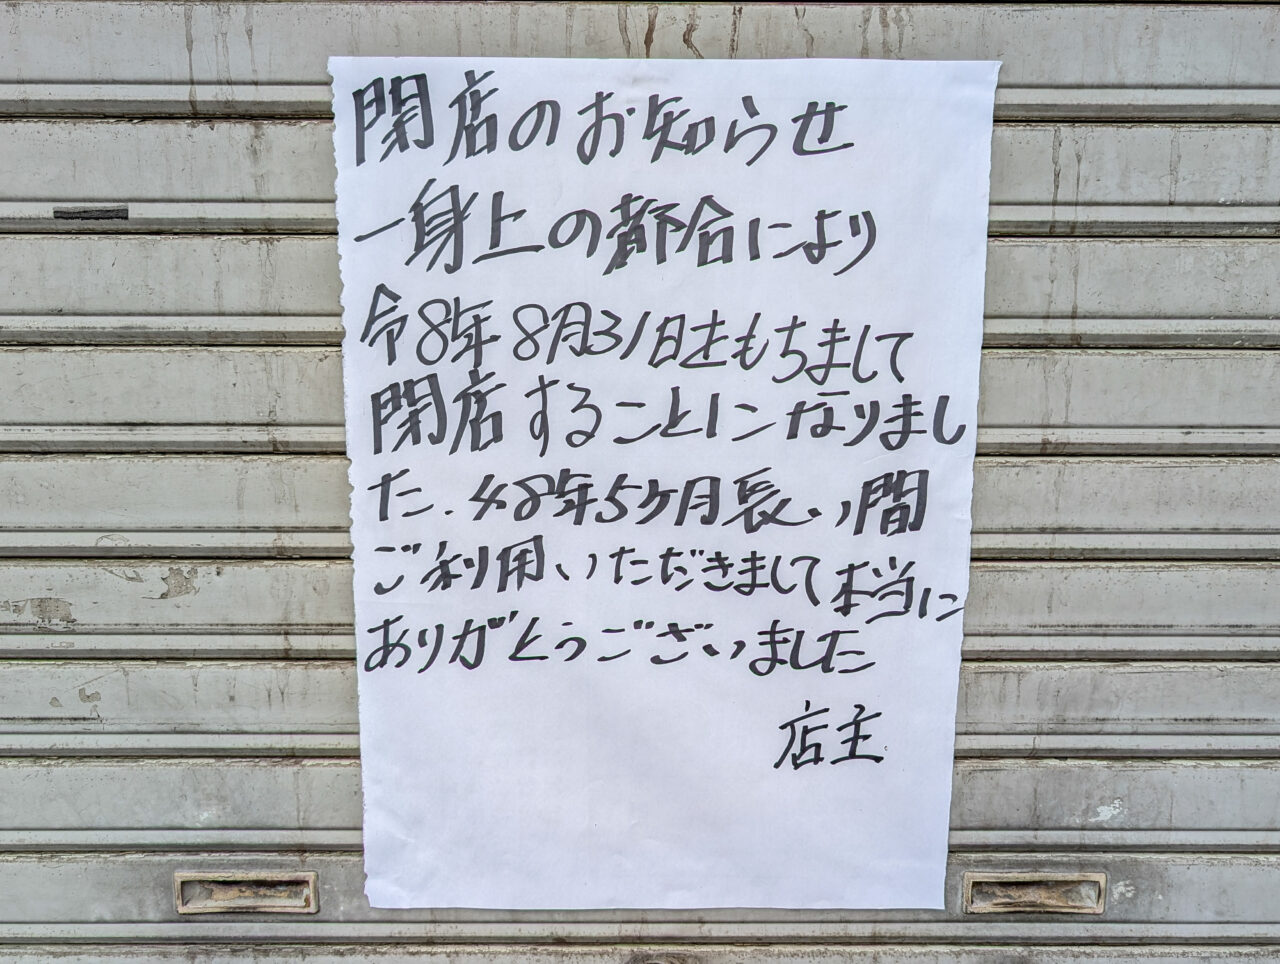 閉店のお知らせ
一身上の都合により
令8年8月31日をもちまして
閉店することになりまし
た.48年5ケ月長い間
ご利用いただきまして本当に
ありがとうございました
店主